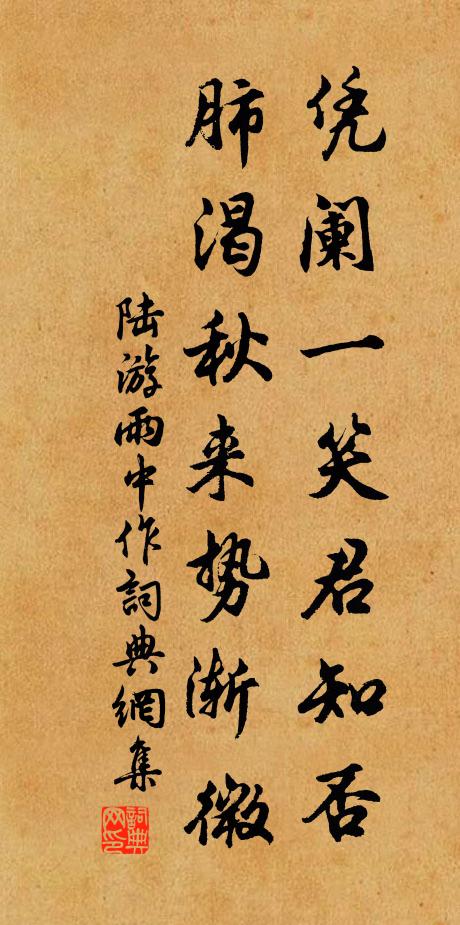 凭阑一笑君知否
肺渴秋来势渐微
陆游雨中作詞典網集
詞典网印